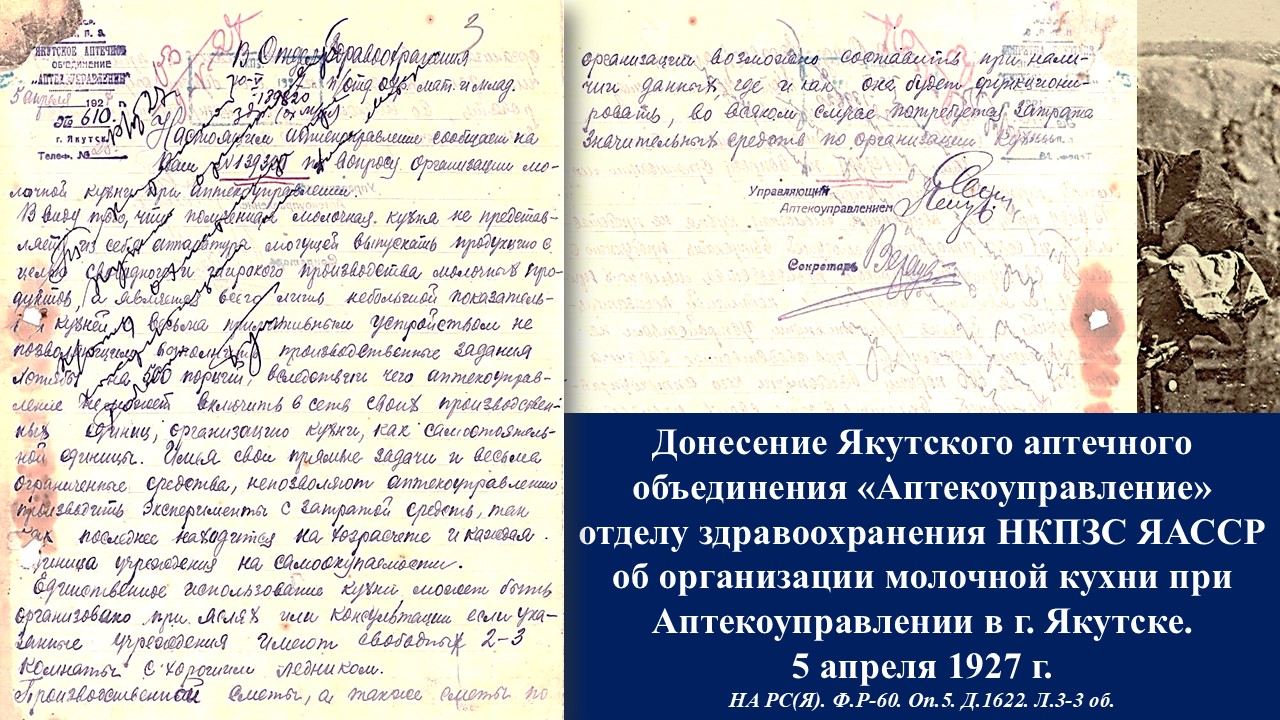 3
ЯКУТСКОЕ АПТЕЧНОЕ
ОБЪЕДИНЕНИЕ
"АПТЕКОУПРАВЛЕНИЕ"
5 апреля 192
№ 610
г. Якутск
Телеф. №
В Отдел Здравоохранения
П/отд. охр. мат. и млад.
Настоящим аптекоуправление сообщает на
Ваш № 139320 по вопросу организации мо-
лочной кухни при аптекоуправлении.
В виду того, что помянутая молочная кухня не представ-
ляет из себя аппаратура могущей выпускать продукцию с
целью свободного и широкого производства молочных про-
дуктов, а является всего лишь небольшой показатель-
ной кухней и весьма примитивным устройством не
производственные задания
хотя бы на 500 порций, вследствии чего аптекоуправ-
ление не может включить в сеть своих производствен-
ных единиц, организацию кухни, как самостоятель-
ной единицы. Имея свои прямые задачи и весьма
ограниченные средства, непозволяют аптекоуправлению
производить эксперименты с затратой средств, так
как последнее находится на хозрасчете и каждая
единица учреждения на самоокупаемости.
Единственное использование кухни может быть
организовано при яслях или консультации если ука-
занные учреждения имеют свободных 2-3
комнаты с хорошим ледником.
Производственной сметы, а также сметы по
организации возможно составить при нали-
чии данных, где и как она будет функциони-
ровать, во всяком случае потребуется затрата
значительных средств по организации кухни.
Управляющий
Аптекоуправлением
Секретарь
Донесение Якутского аптечного
объединения «Аптекоуправление»
отделу здравоохранения НКПЗС ЯАССР
об организации молочной кухни при
Аптекоуправлении в г. Якутске.
5 апреля 1927 г.
НА РС(Я). Ф.Р-60. Оп.5. Д.1622. Л.3-3 об.